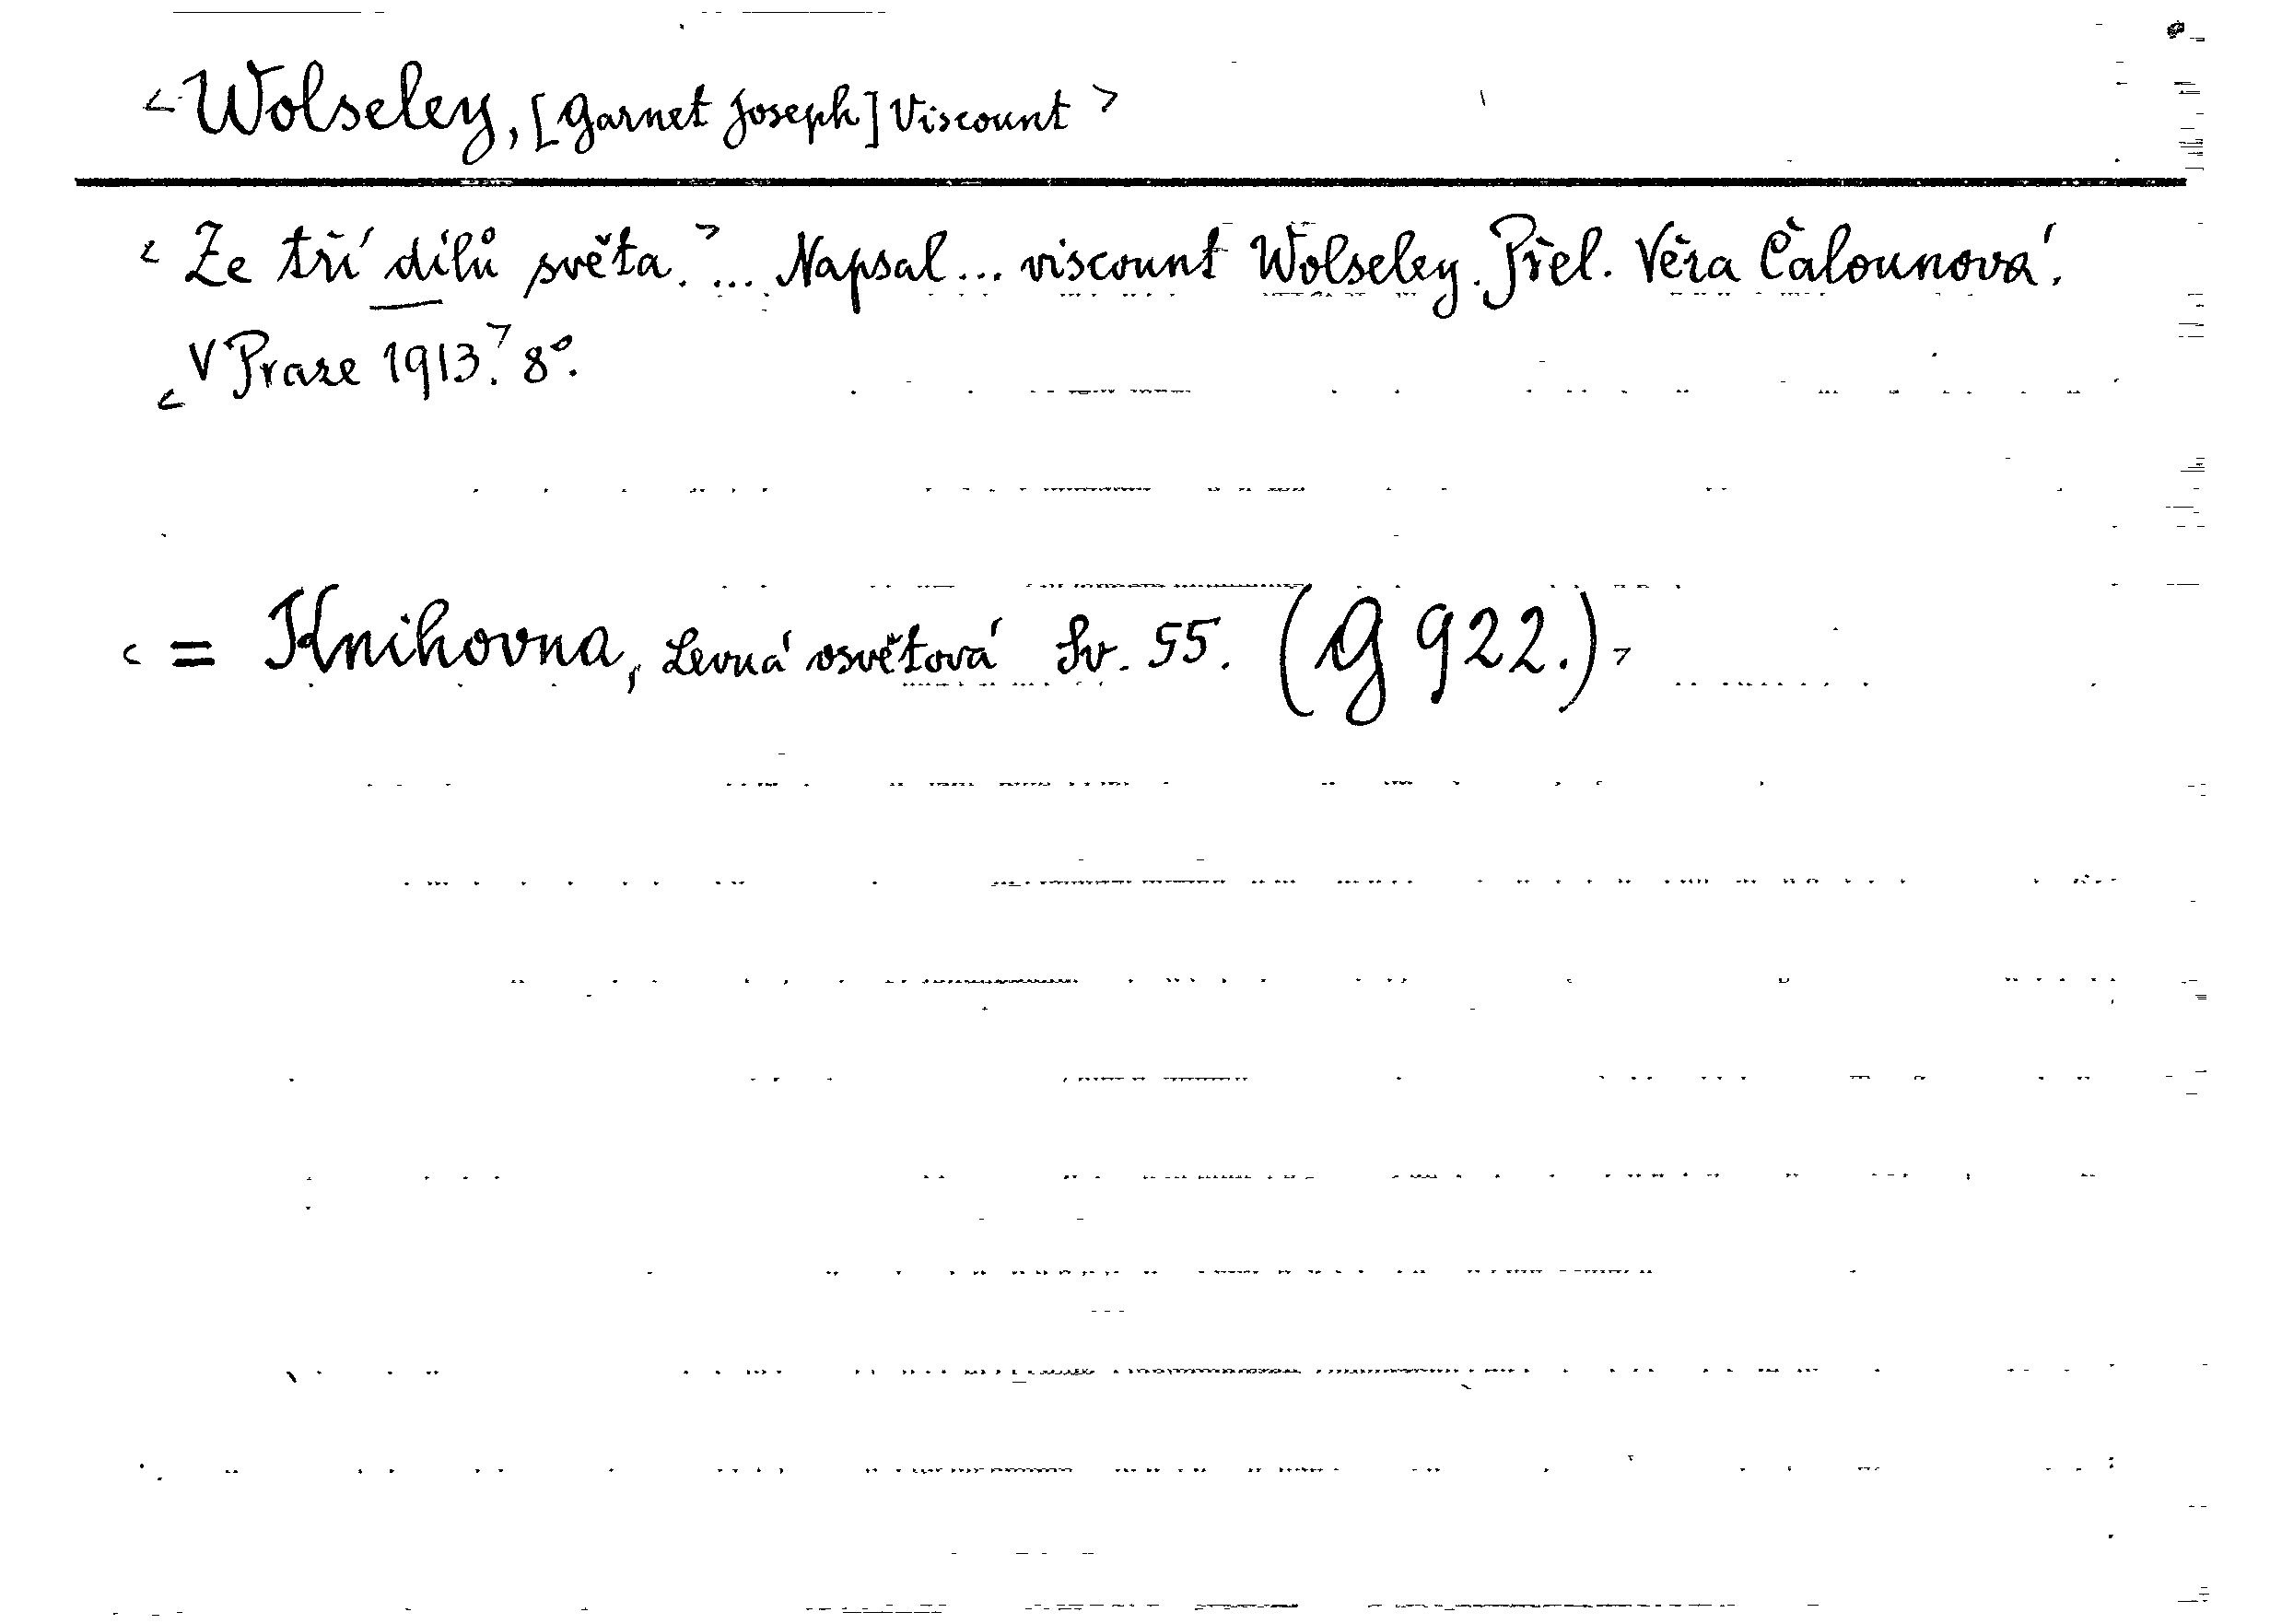 <Wolseley, [Garnet Joseph] Viscount>
<Ze tří dílů světa.>... Napsal... viscount Wolseley. Přel. Věra Čalounová.
<V Praze 1913.> 8°.
<= Knihovna, Levná osvětová Sv. 55. (G 922.)>